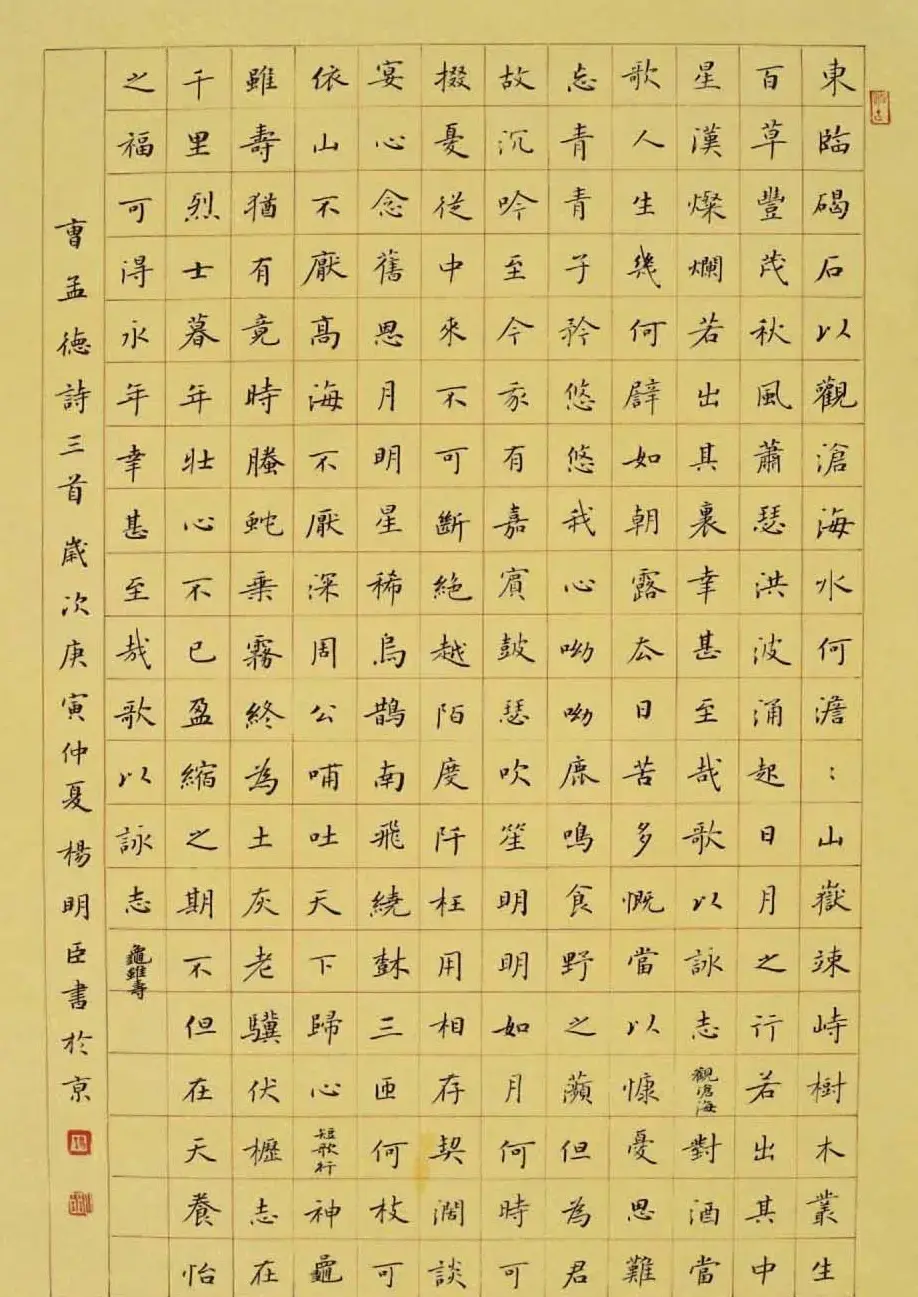 東臨碣石以觀滄海水何澹：山嶽竦峙樹木叢生
百草豐茂秋風蕭瑟洪波涌起日月之行若出其中
星漢燦爛若出其裏幸甚至哉歌以詠志觀滄海對酒當
歌人生幾何譬如朝露去日苦多慨當以慷憂思難
忘青青子衿悠悠我心呦呦鹿鳴食野之蘋但為君
故沉吟至今我有嘉賓鼓瑟吹笙明明如月何時可
掇憂從中來不可斷絕越陌度阡枉用相存契濶談
宴心念舊恩月明星稀烏鵲南飛繞樹三匝何枝可
依山不厭高海不厭深周公哺吐天下歸心短歌行神龜
雖壽猶有竟時螣蛇乘霧終為土灰老驥伏櫪志在
千里烈士暮年壯心不已盈縮之期不但在天養怡
之福可得永年幸甚至哉歌以詠志龜雖壽
曹孟德詩三首歲次庚寅仲夏楊明臣書於京